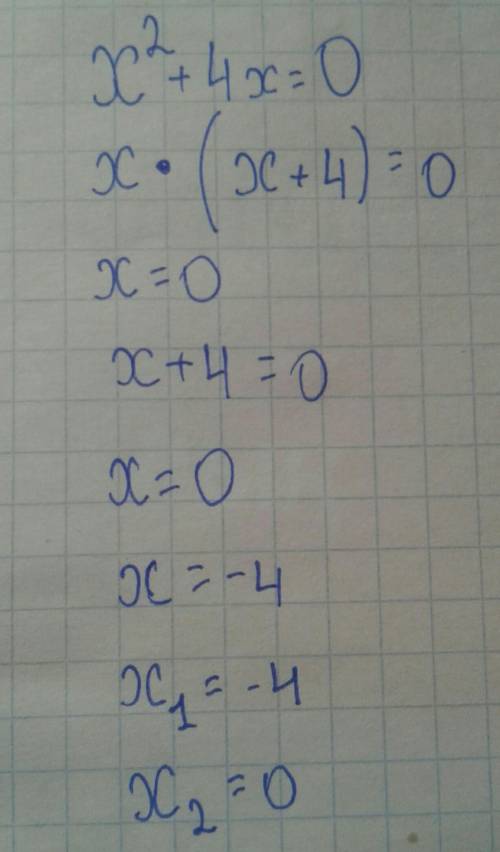 x² + 4x = 0
x · (x + 4) = 0
x = 0
x + 4 = 0
x = 0
x = -4
x₁ = -4
x₂ = 0